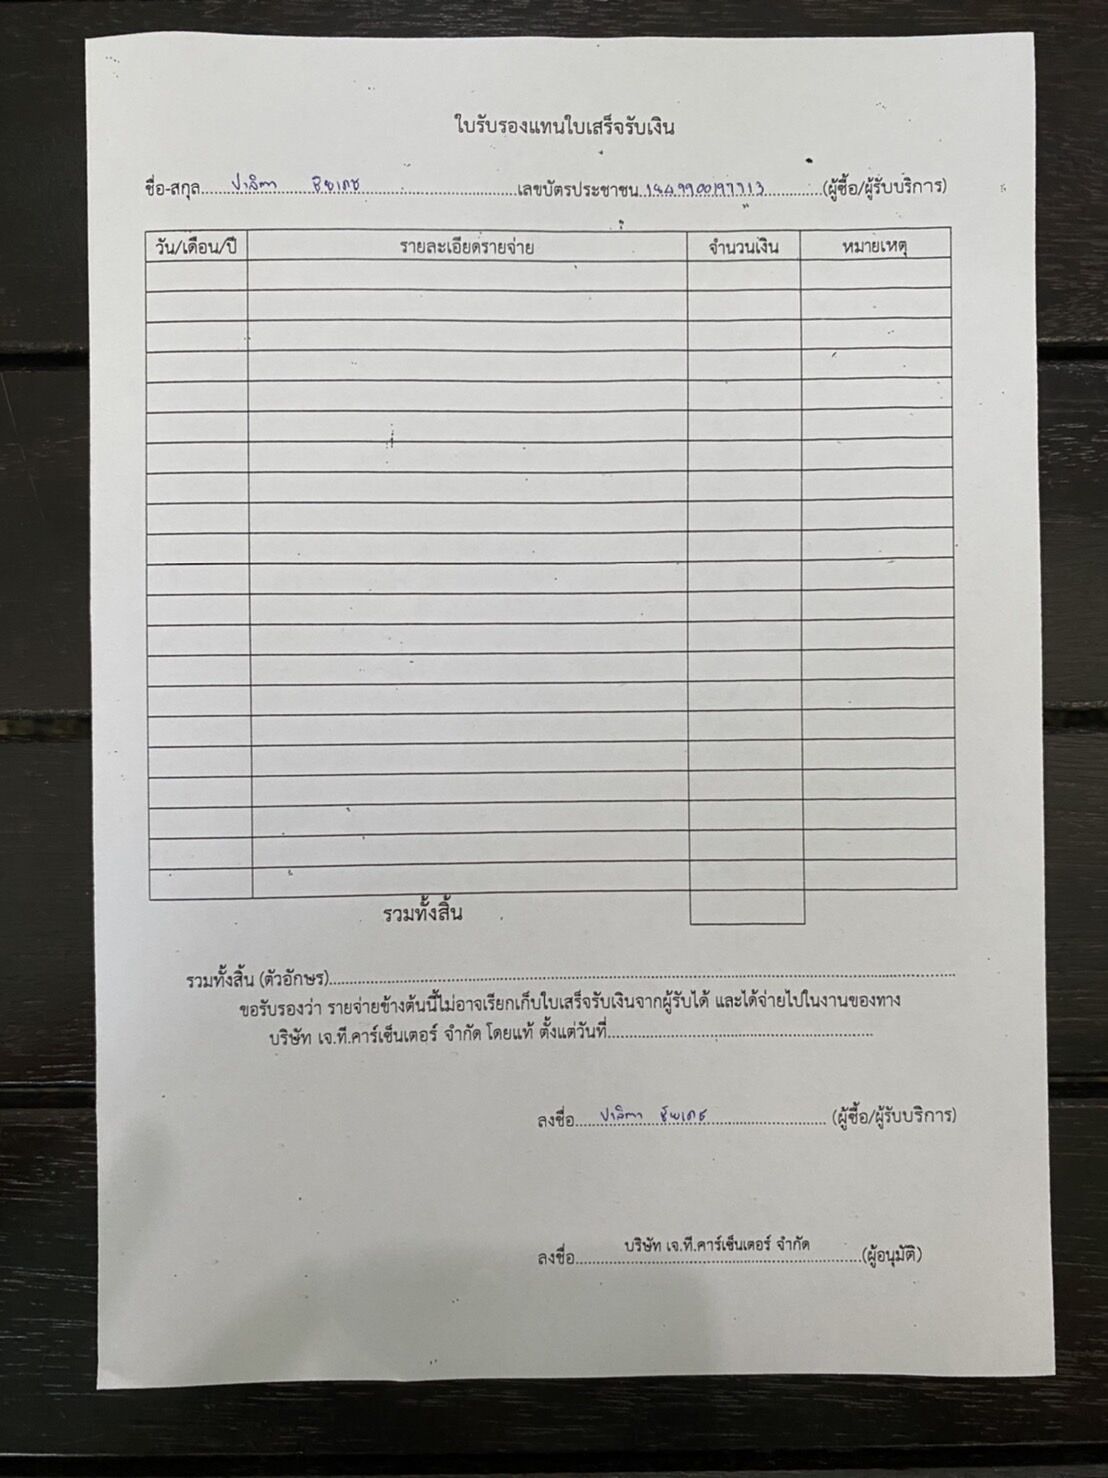 ใบรับรองแทนใบเสร็จรับเงิน
ชื่อ-สกุล..... ปาลิตา ชัยเดช .....เลขบัตรประชาชน. 1449900197713 .....(ผู้ซื้อ/ผู้รับบริการ)
วัน/เดือน/ปี รายละเอียดรายจ่าย จำนวนเงิน หมายเหตุ
รวมทั้งสิ้น
รวมทั้งสิ้น (ตัวอักษร).....
ขอรับรองว่า รายจ่ายข้างต้นนี้ไม่อาจเรียกเก็บใบเสร็จรับเงินจากผู้รับได้ และได้จ่ายไปในงานของทาง
บริษัท เจ.ที.คาร์เซ็นเตอร์ จำกัด โดยแท้ ตั้งแต่วันที่.....
ลงชื่อ..... ปาลิตา ชัยเดช ..... (ผู้ซื้อ/ผู้รับบริการ)
บริษัท เจ.ที.คาร์เซ็นเตอร์ จำกัด
ลงชื่อ.....(ผู้อนุมัติ)